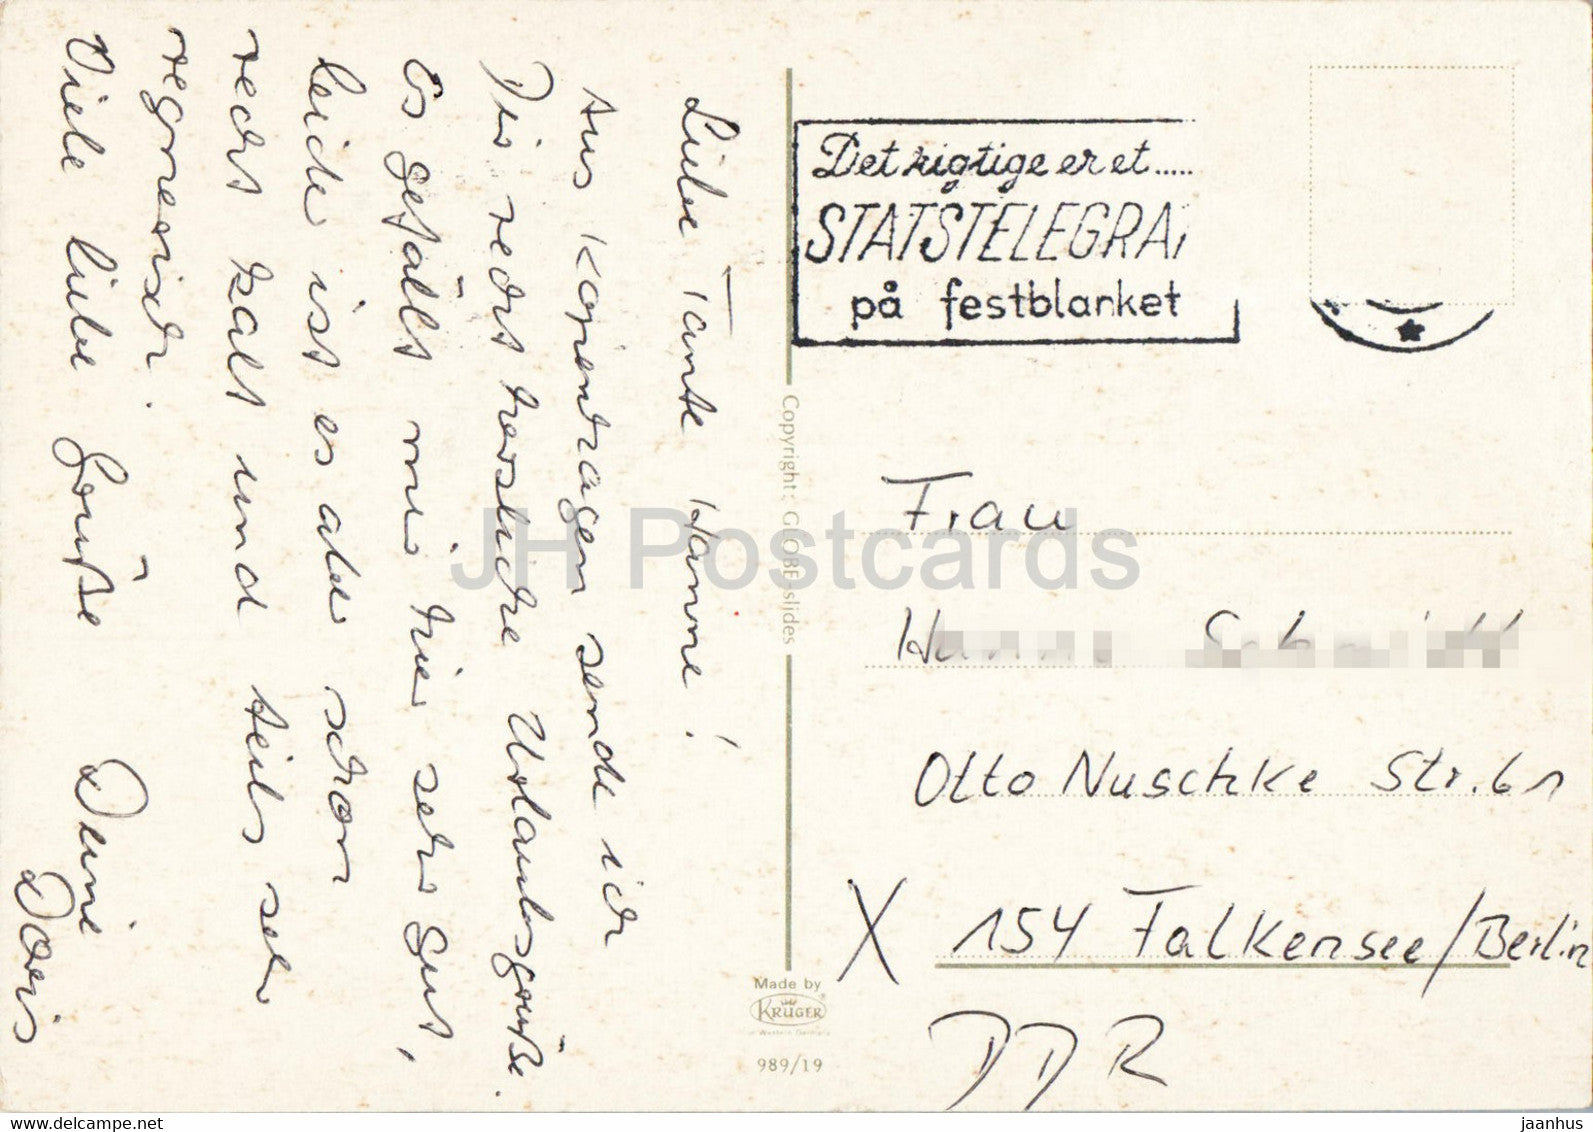 Liebe Tante Hanne!
Aus Kopenhagen sende ich
Dir recht herzliche Urlaubsgrüße.
Es gefällt mir hier sehr gut,
leider ist es aber schon
recht kalt und teils sehr
regnerisch.
Viele liebe Grüße Deine
Doris
Det rigtige er et.....
STATSTELEGRA
på festblanket
Copyright: GLOBE-slides
Made by
KRÜGER®
Western Germany
989/19
Frau
Otto Nuschke Str. 61
X 154 Falkensee/Berlin
DDR
JH Postcards
www.delcampe.net
jaanhus